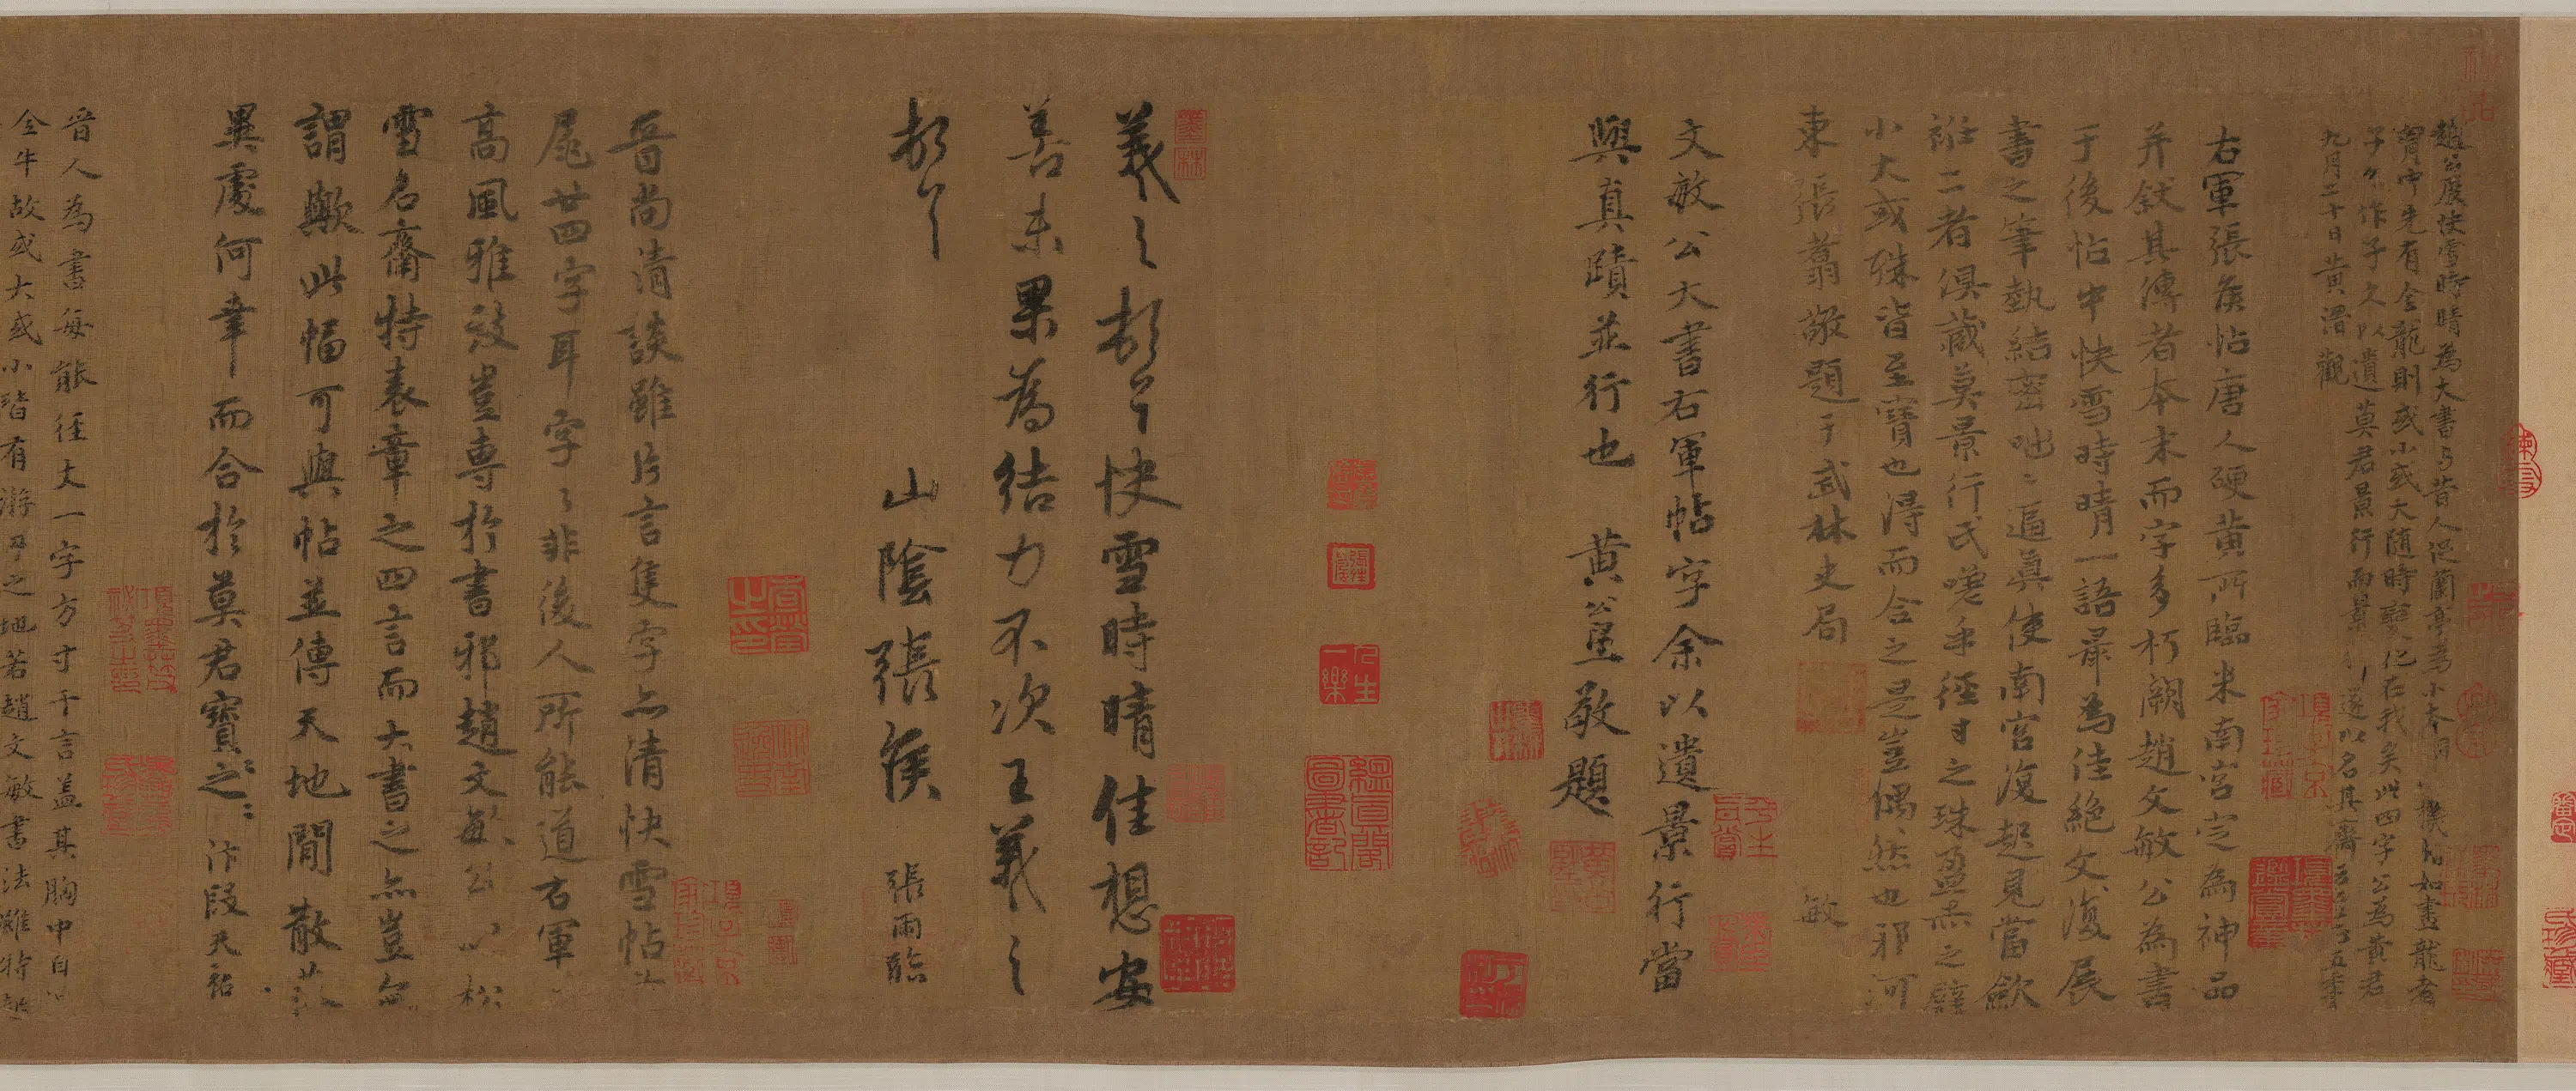 趙公展快雪時晴為大書與昔人促蘭亭為小本同一機如畫龍者
胷中先有全龍則或小或大隨時變化在我矣此四字公為黃君
子久作子久以遺莫君景行而景行遂以名其齋至正五年
九月二十日黃溍觀
右軍張侯帖唐人硬黃所臨米南宮定為神品
并敘其傳者本末而字多朽闕趙文敏公為書
于後帖中快雪時晴一語最為佳絕文敏復展
書之筆執結密咄咄逼真使南宮復起見當歛
衽二者俱藏莫景行氏嗟乎徑寸之珠盈赤之璧
小大或殊皆至寶也得而合之是豈偶然也邪河
東張翥敬題于武林史局
敏
文敏公大書右軍帖字余以遺景行當
與真蹟並行也 黃公望敬題
羲之頓首快雪時晴佳想安
善未果為結力不次王羲之
頓首
山陰張侯
張雨臨
晉尚清談雖片言隻字亦清快雪帖首
尾廿四字耳字字非後人所能道右軍
高風雅致豈專於書邪趙文敏公以松
雪名齋特表章之四言而大書之亦豈無
謂歟此幅可與帖並傳天地間散落
異處何幸而合於莫君寶之寶之 汴段天祐
晉人為書每能徑丈一字方寸千言蓋其胸中自有
全牛故或大或小皆有游刃之地若趙文敏書法雖特起